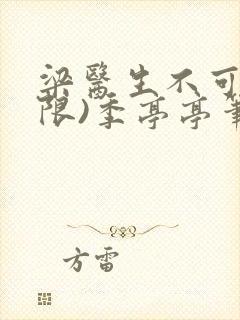 梁醫生不可
限)季亭亭筆
方雷